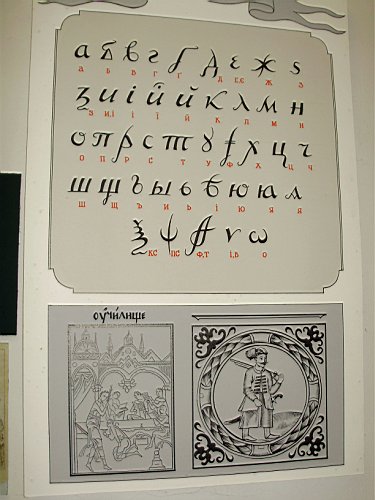 а б в г ґ д е ж ѕ
а б в г ґ д,е,є ж з
ꙁ и і ї й к л м н
з и,і і ї й к л м н
о п р с т ꙋ ф х ц ч
о п р с т у ф х ц ч
ш щ ъ ы ь ѣ ю ꙗ ѧ
ш щ ъ и ь і ю я я
ѯ ѱ ѳ ѵ ѡ
кс пс ф,т і,в о
оучи́лище